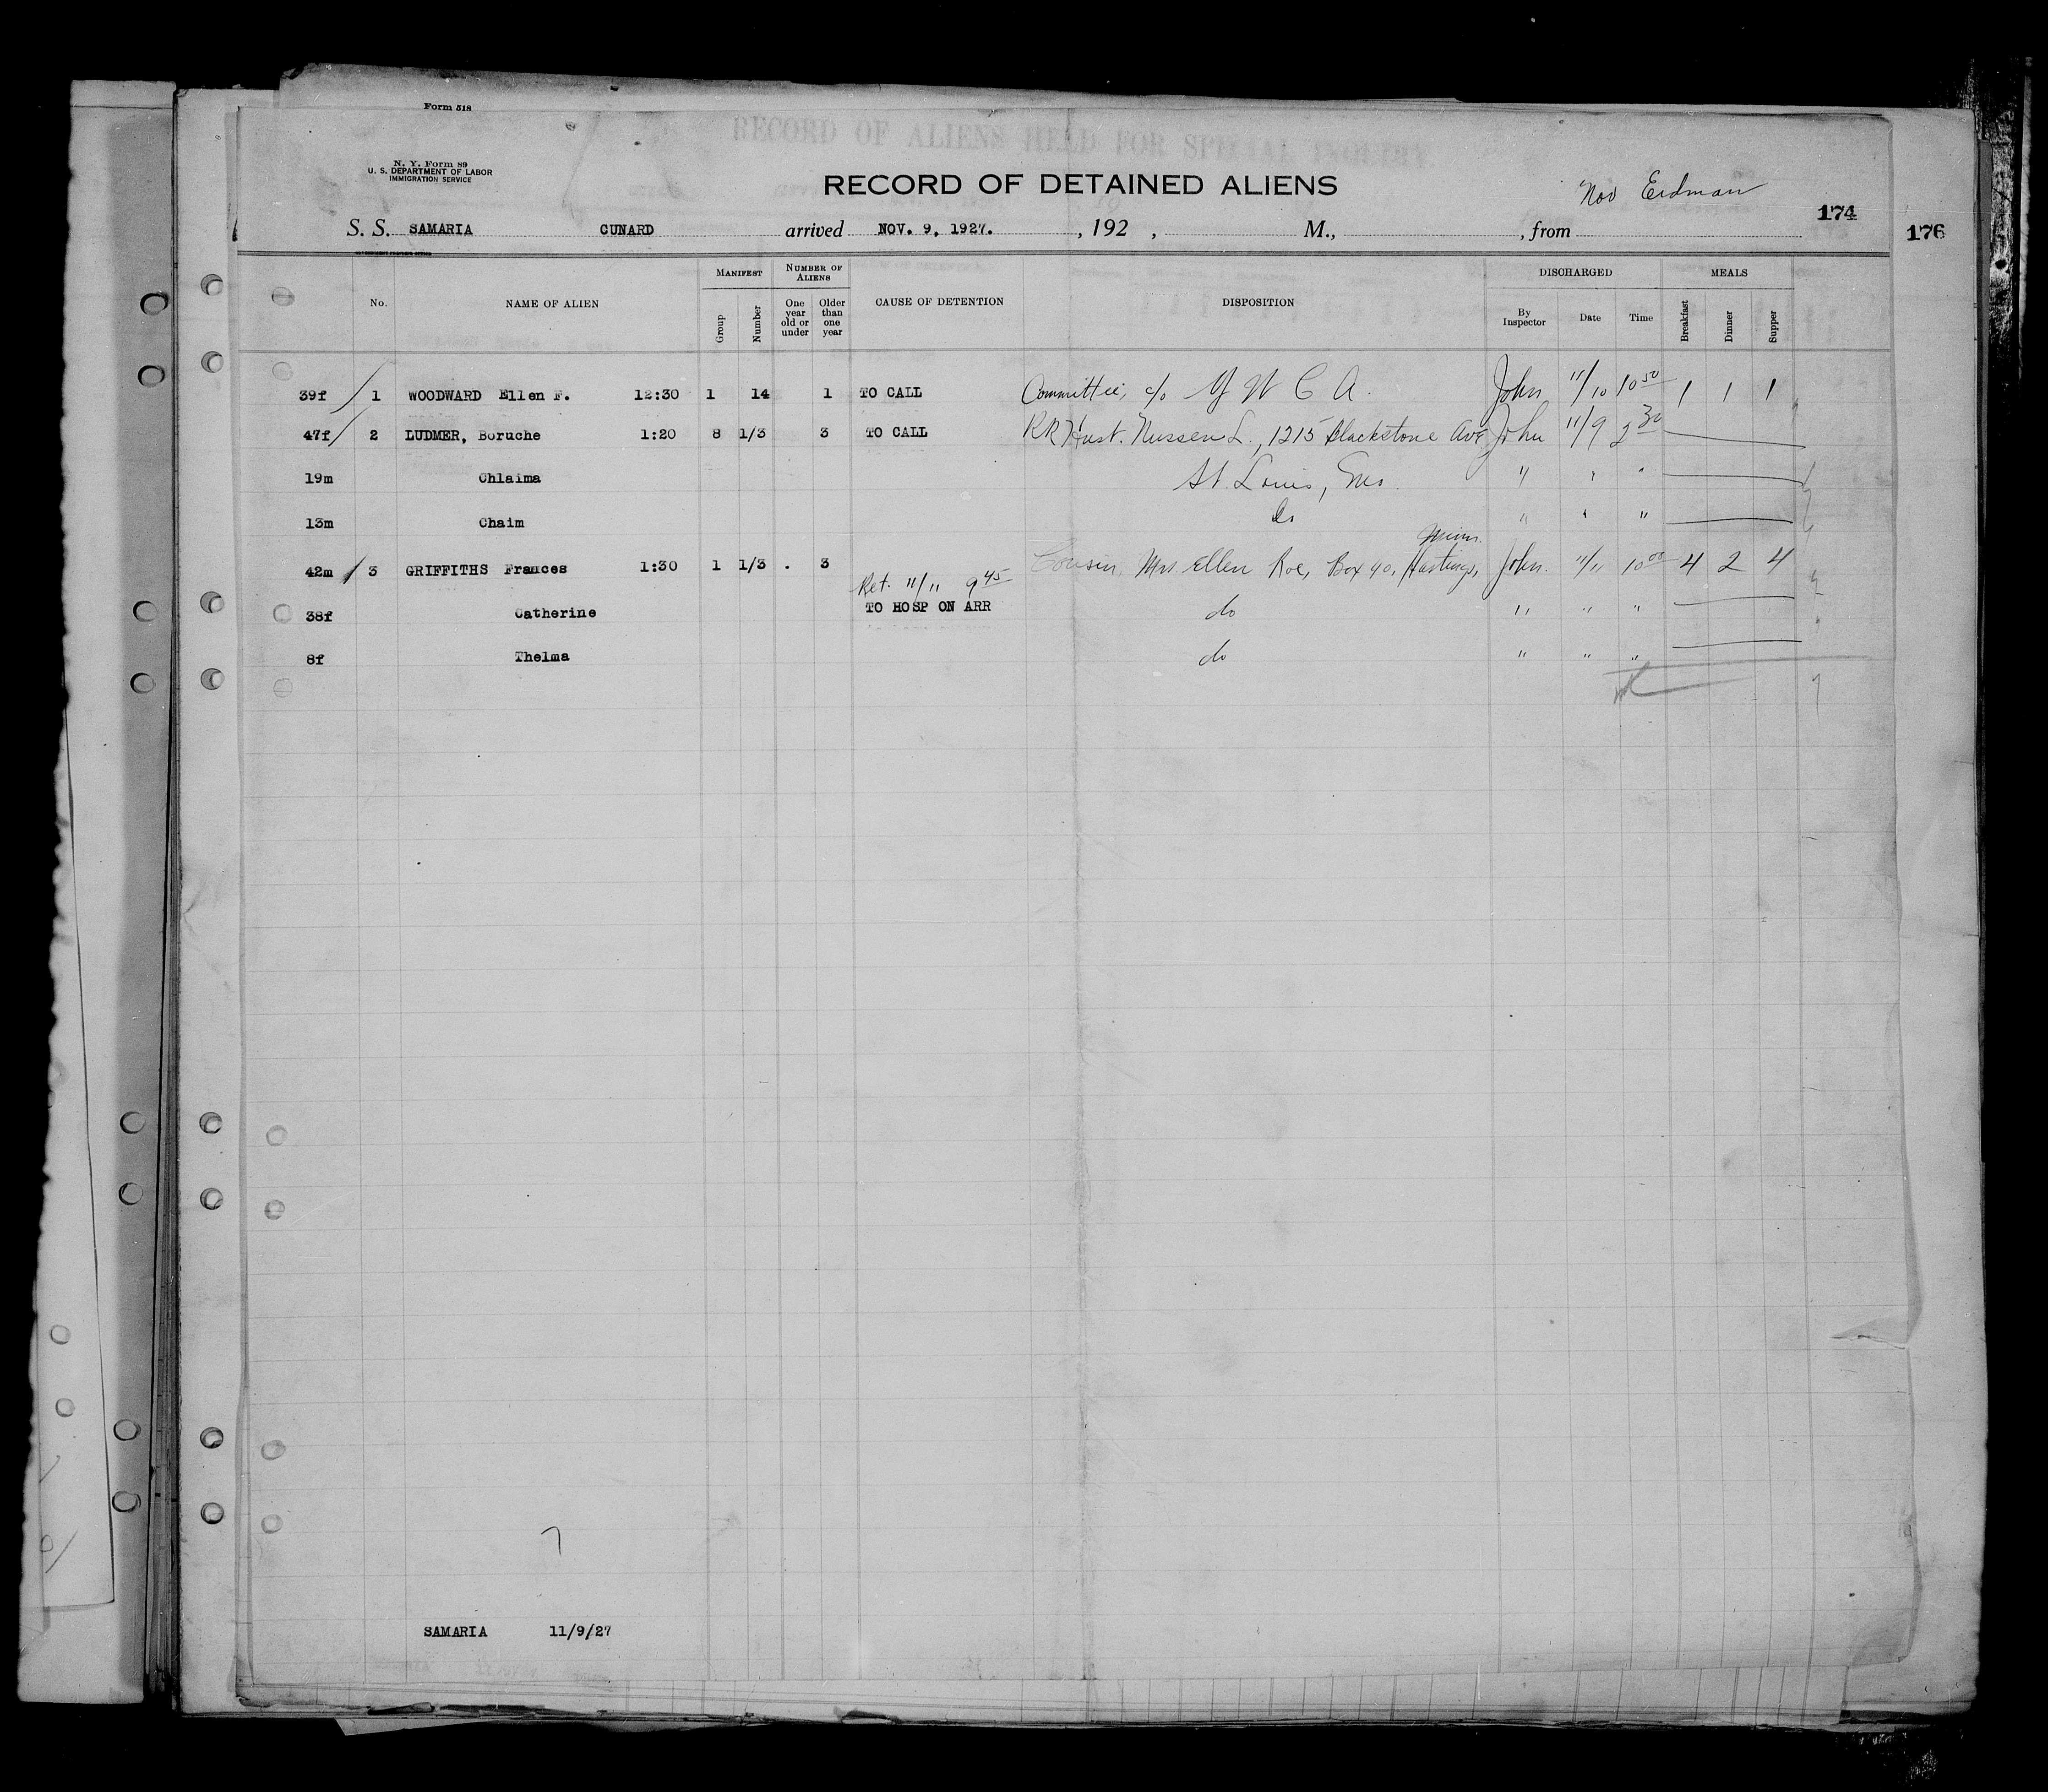 Form 518
RECORD OF ALIENS HELD FOR SPECIAL INQUIRY
N. Y. Form 89
U. S. DEPARTMENT OF LABOR
IMMIGRATION SERVICE
RECORD OF DETAINED ALIENS
Nov Erdman
174
176
S. S. SAMARIA CUNARD arrived NOV. 9, 1927. , 192 , M., , from
No. NAME OF ALIEN MANIFEST Group Number NUMBER OF ALIENS One year old or under Older than one year CAUSE OF DETENTION DISPOSITION DISCHARGED By Inspector Date Time MEALS Breakfast Dinner Supper
39f 1 WOODWARD Ellen F. 12:30 1 14 1 TO CALL Committee, c/o Y W C A. John 11/10 10 50 1 1 1
47f 2 LUDMER, Boruche 1:20 8 1/3 3 TO CALL RR Hust. Nussen L., 1215 Blackstone Ave John 11/9 2 30
19m Chlaima St. Louis, Mo. " " "
13m Chaim do " " "
Minn.
42m 3 GRIFFITHS Frances 1:30 1 1/3 . 3 Cousin, Mrs Ellen Roe, Box 40, Hastings, John. 11/11 10 00 4 2 4
Ret. 11/11 9 45
38f Catherine TO HOSP ON ARR do " " "
8f Thelma do " " "
7
SAMARIA 11/9/27